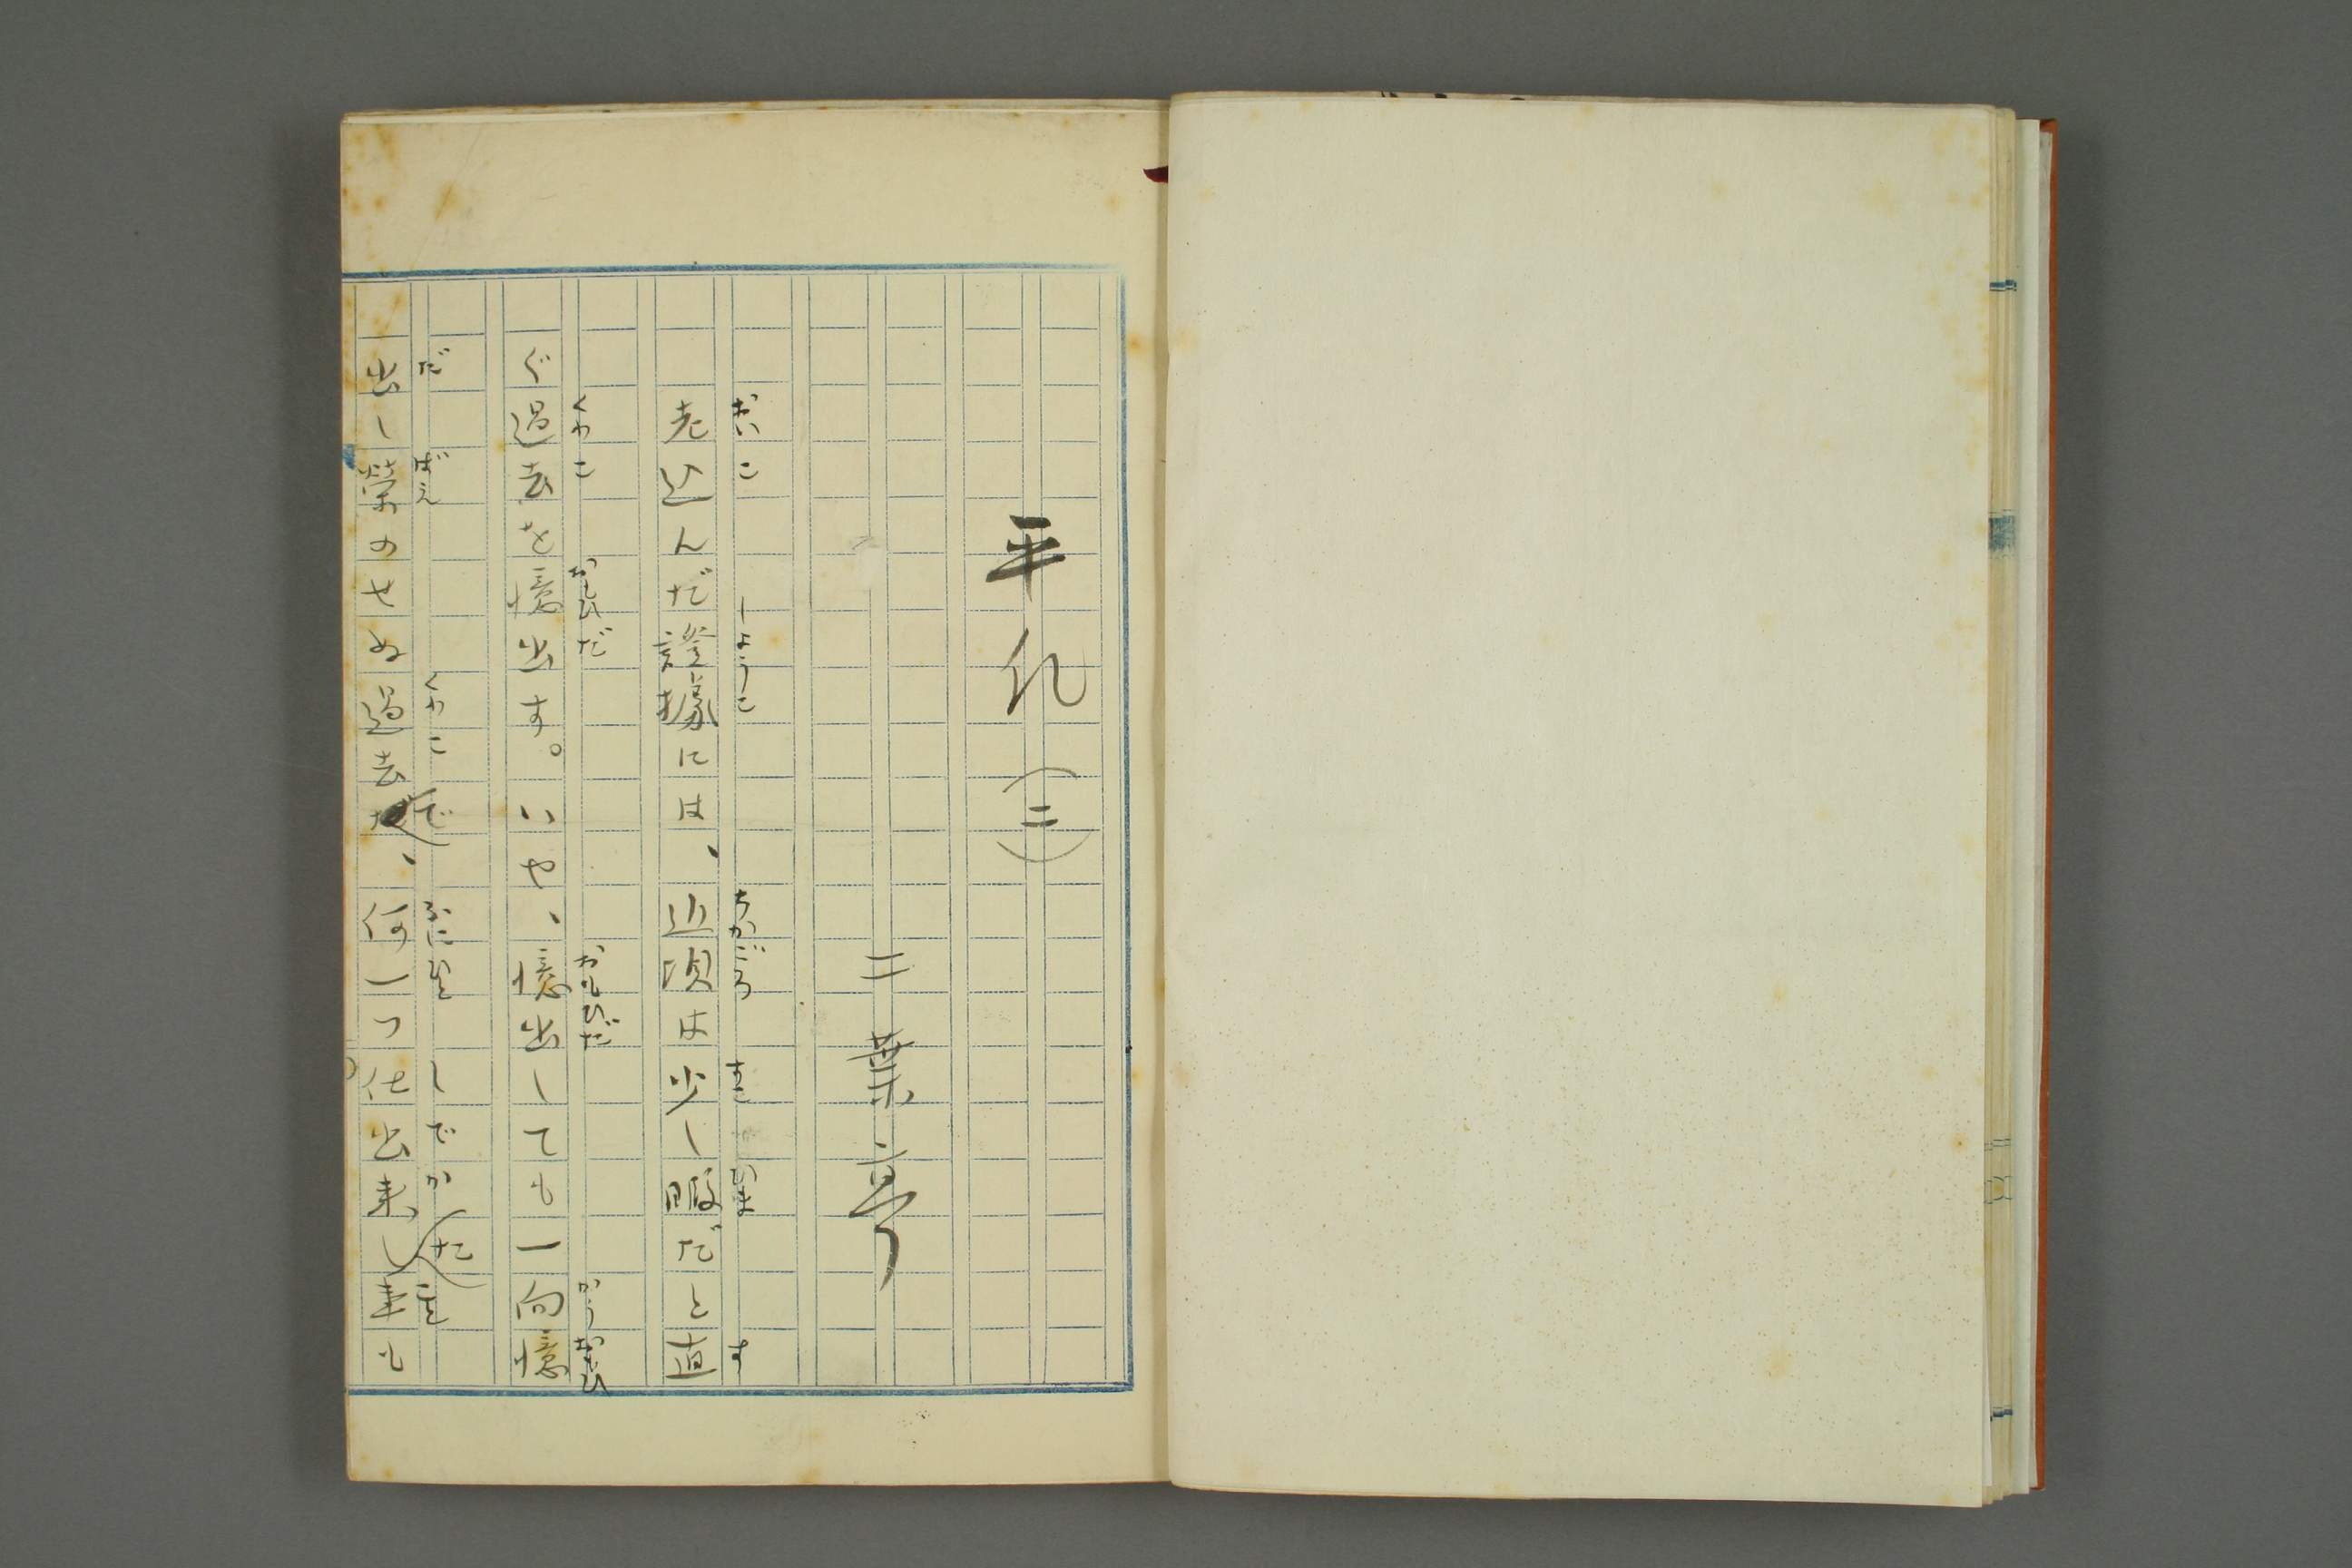 平凡(二)
二葉亭
老込んだ證據には、近頃は少し暇だと直
ぐ過去を憶出す。いや、憶出しても一向憶
出し榮のせぬ過去で、何一つ仕出來した事も